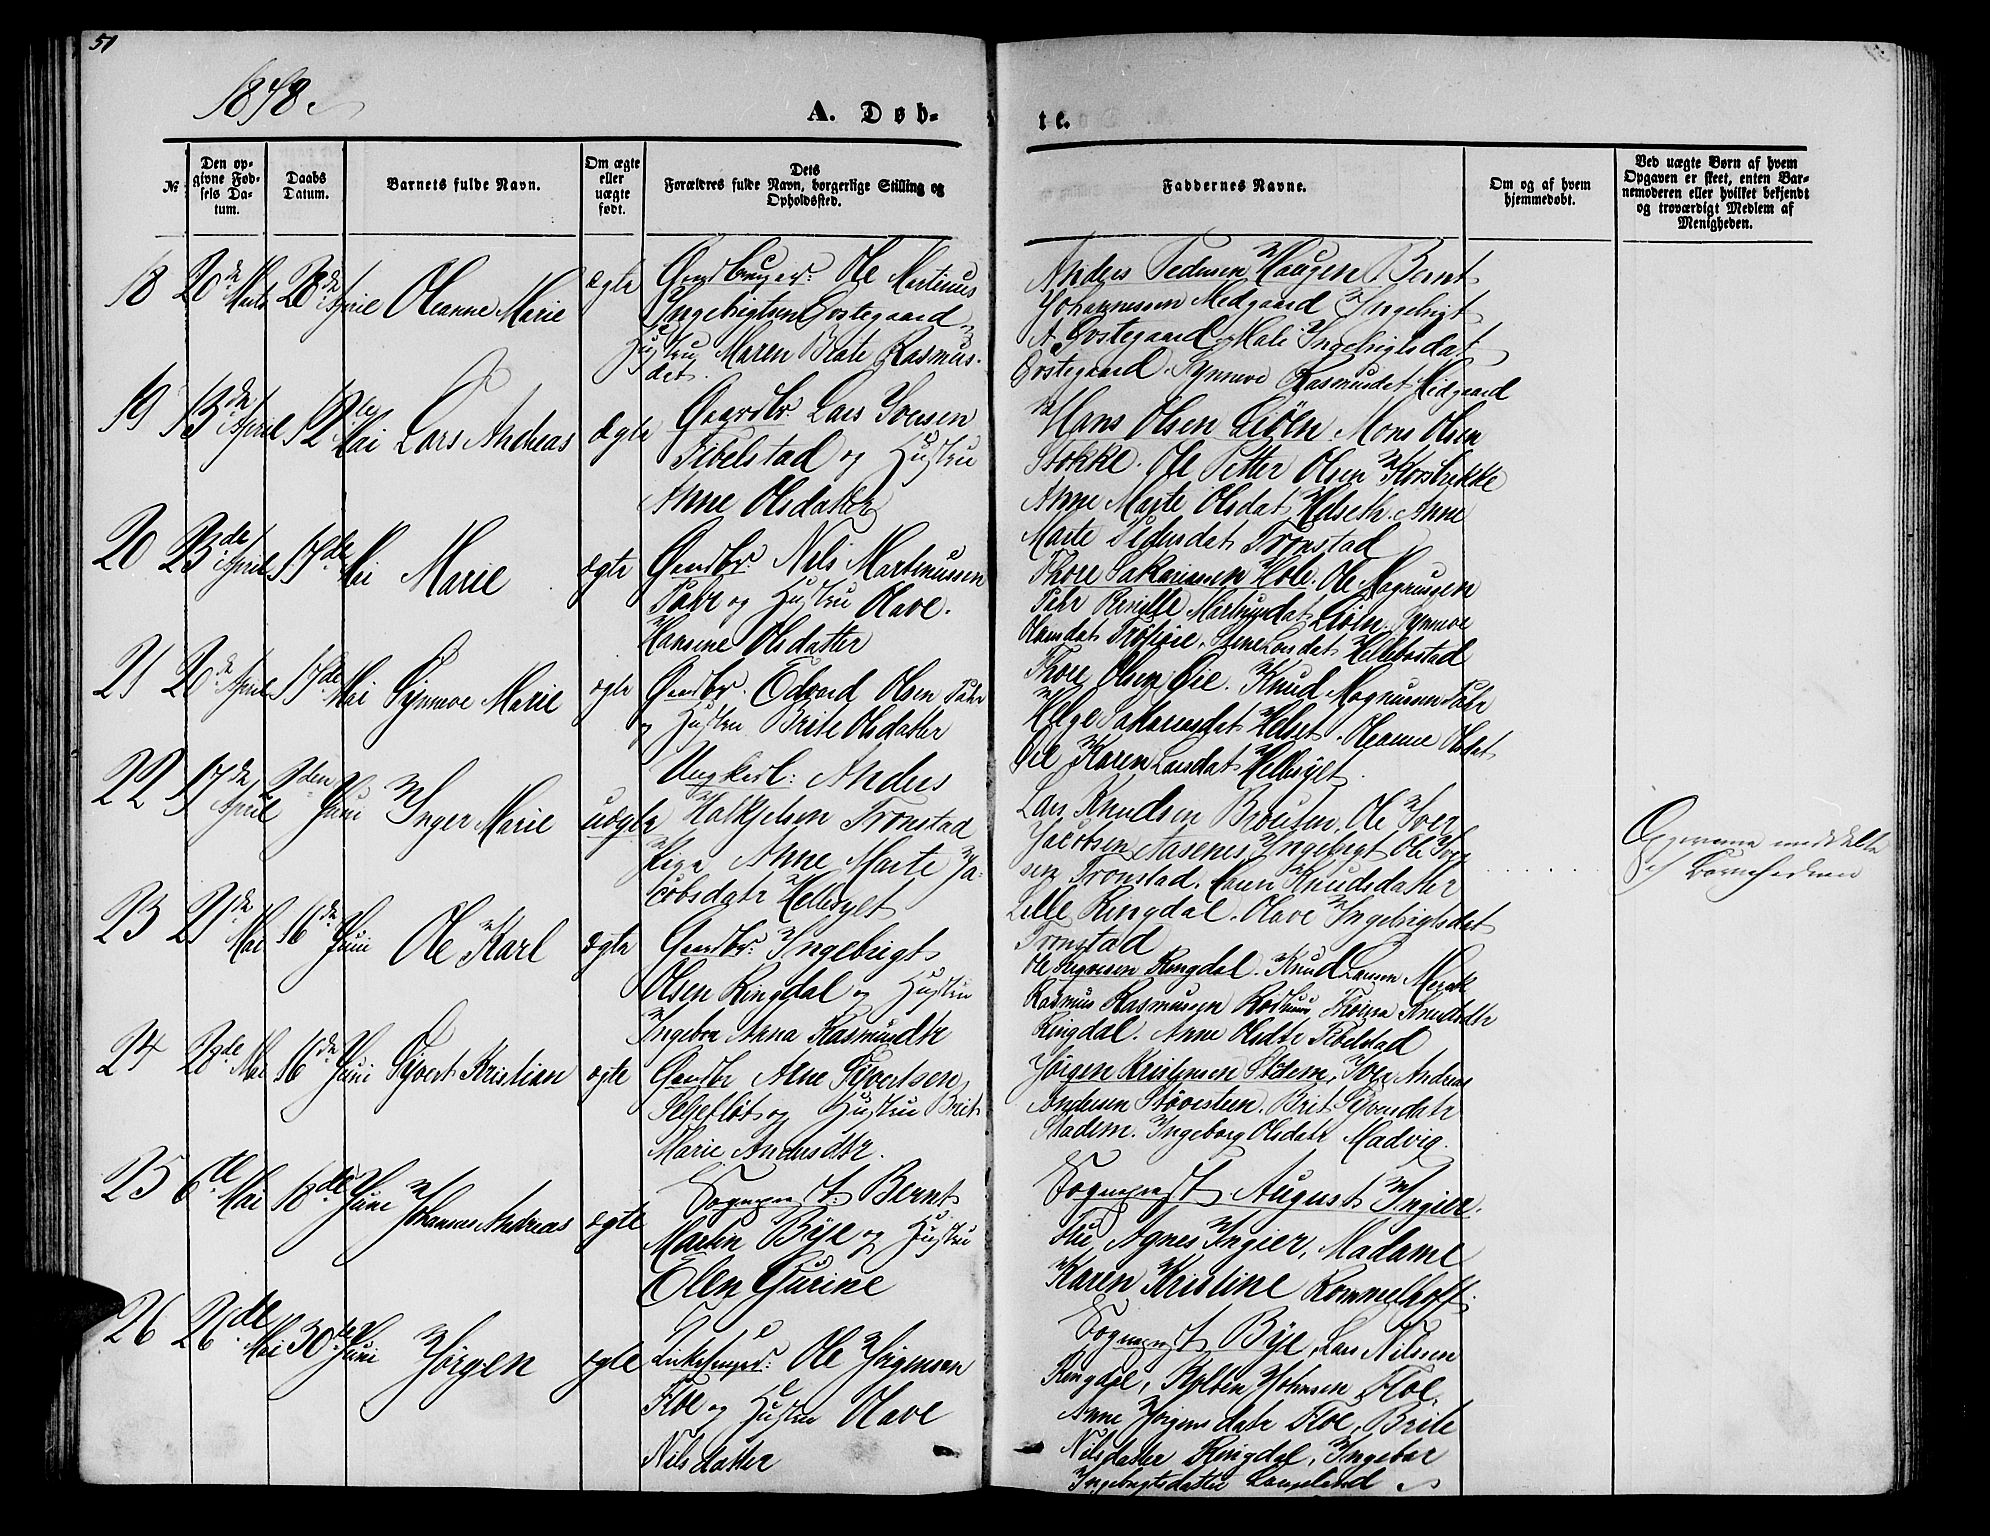 51
1878.
A. Døb-
te.
№
Den op-
givne Fød-
sels Da-
tum.
Daabs
Datum.
Barnets fulde Navn.
Om ægte
eller
uægte
født.
Dets
Forældres fulde Navn, borgerlige Stilling og
Opholdssted.
Faddernes Navne.
Om og af hvem
hjemmedøbt.
Ved uægte Børn af hvem
Opgaven er skeet, enten Bar-
nemoderen eller hvilket bekjendt
og troværdigt Medlem af
Menigheden.
18 20de Marts 28de April Oleanne Marie ægte
Gaardbruger: Ole Martinus
Ingebrigtsen Gostegaard
Hustru Maren Beate Rasmus-
dat.
Anders Pedersen Haugen Bernt
Johannessen Medgaard Ingebrigt
A. Gostegaard Mali Ingebrigtsdat
Gostegaard. Synnøve Rasmusdat Midgaard
19 13de April 12te Mai Lars Andreas ægte
Gaardbr. Lars Iversen
Fibelstad og Hustru
Anne Olsdatter
Hans Olsen Liøen Mons Olsen
Stokke. Ole Petter Olsen Korsbrekke
Anne Marte Olsdat Helseth. Anne
Marte Pedersdat Tronstad
20 23de April 17de Mai Marie ægte
Gaardbr. Nils Martinussen
Tahr og Hustru Olave.
Hansine Olsdatter
Thore Sakariassen Hole. Ole Magnussen
Tahr Martinusdat Liøen. Synnøve
Larsdat Hellebostad
21 20de April 17de Mai Synnøve Marie ægte
Gaardbr. Edvard Olsen Tahr
og Hustru Brite Olsdatter
Thore Olsen Øie. Knud Magnussen Tahr
Helge Sakariasdat Helset. Oleanne Olsdat
Øie Karen Larsdat Hellesylt.
22 17de April 2den Juni Inger Marie uægte
Ungkarl: Anders
Halkjelsen Tronstad
Pige Anne Marte Ja-
cobsdatr Hellesylt
Lars Knudsen Brouten. Ole Iver
Jacobsen Aasenes Ingebrigt Ole
sen Tronstad. Knudsdatter
Lille Ringdal. Olave Ingebrigtsdat
Tronstad
Opgaven meddelte
af Barnefaderen
23 21de Mai 16de Juni Ole Karl ægte
Gaardbr: Ingebrigt
Olsen Ringdal og Hustru
Ingebor Anna Rasmusdtr
Ole Ringdal. Knud Larsen
Rasmus Rasmussen Rødhuus Knudsdtr
Ringdal. Anne Olsdtr Fibelstad
24 28de Mai 16de Juni Syvert Kristian ægte
Gaardbr Arne Syvertsen
og Hustru Brit
Marie Andersdtr.
Jørgen Stadem, Iver Andreas
Andersen Støvesteen. Brit Syversdatr
Stadem. Ingeborg Olsdatr Madvig.
25 6te Mai 18de Juni Johannes Andreas ægte
Sognepræst: Bernt
Martin Bye og Hustru
Elen Gurine
Sognepræst August Ingier.
Frue Agnes Ingier, Madame
Karen Kristine Rommelhoff.
26 26de Mai 30te Juni Jørgen ægte
Kirkesanger: Ole Jørgensen
Floe og Hustru Olave
Nilsdatter
Sognepræst Bye, Lars Nilsen
Ringdal, Johnsen Floe.
Anne Jørgensdatr Floe, Brite
Nilsdatter Ringdal, Ingebor
Ingebrigtsdatter Langeland